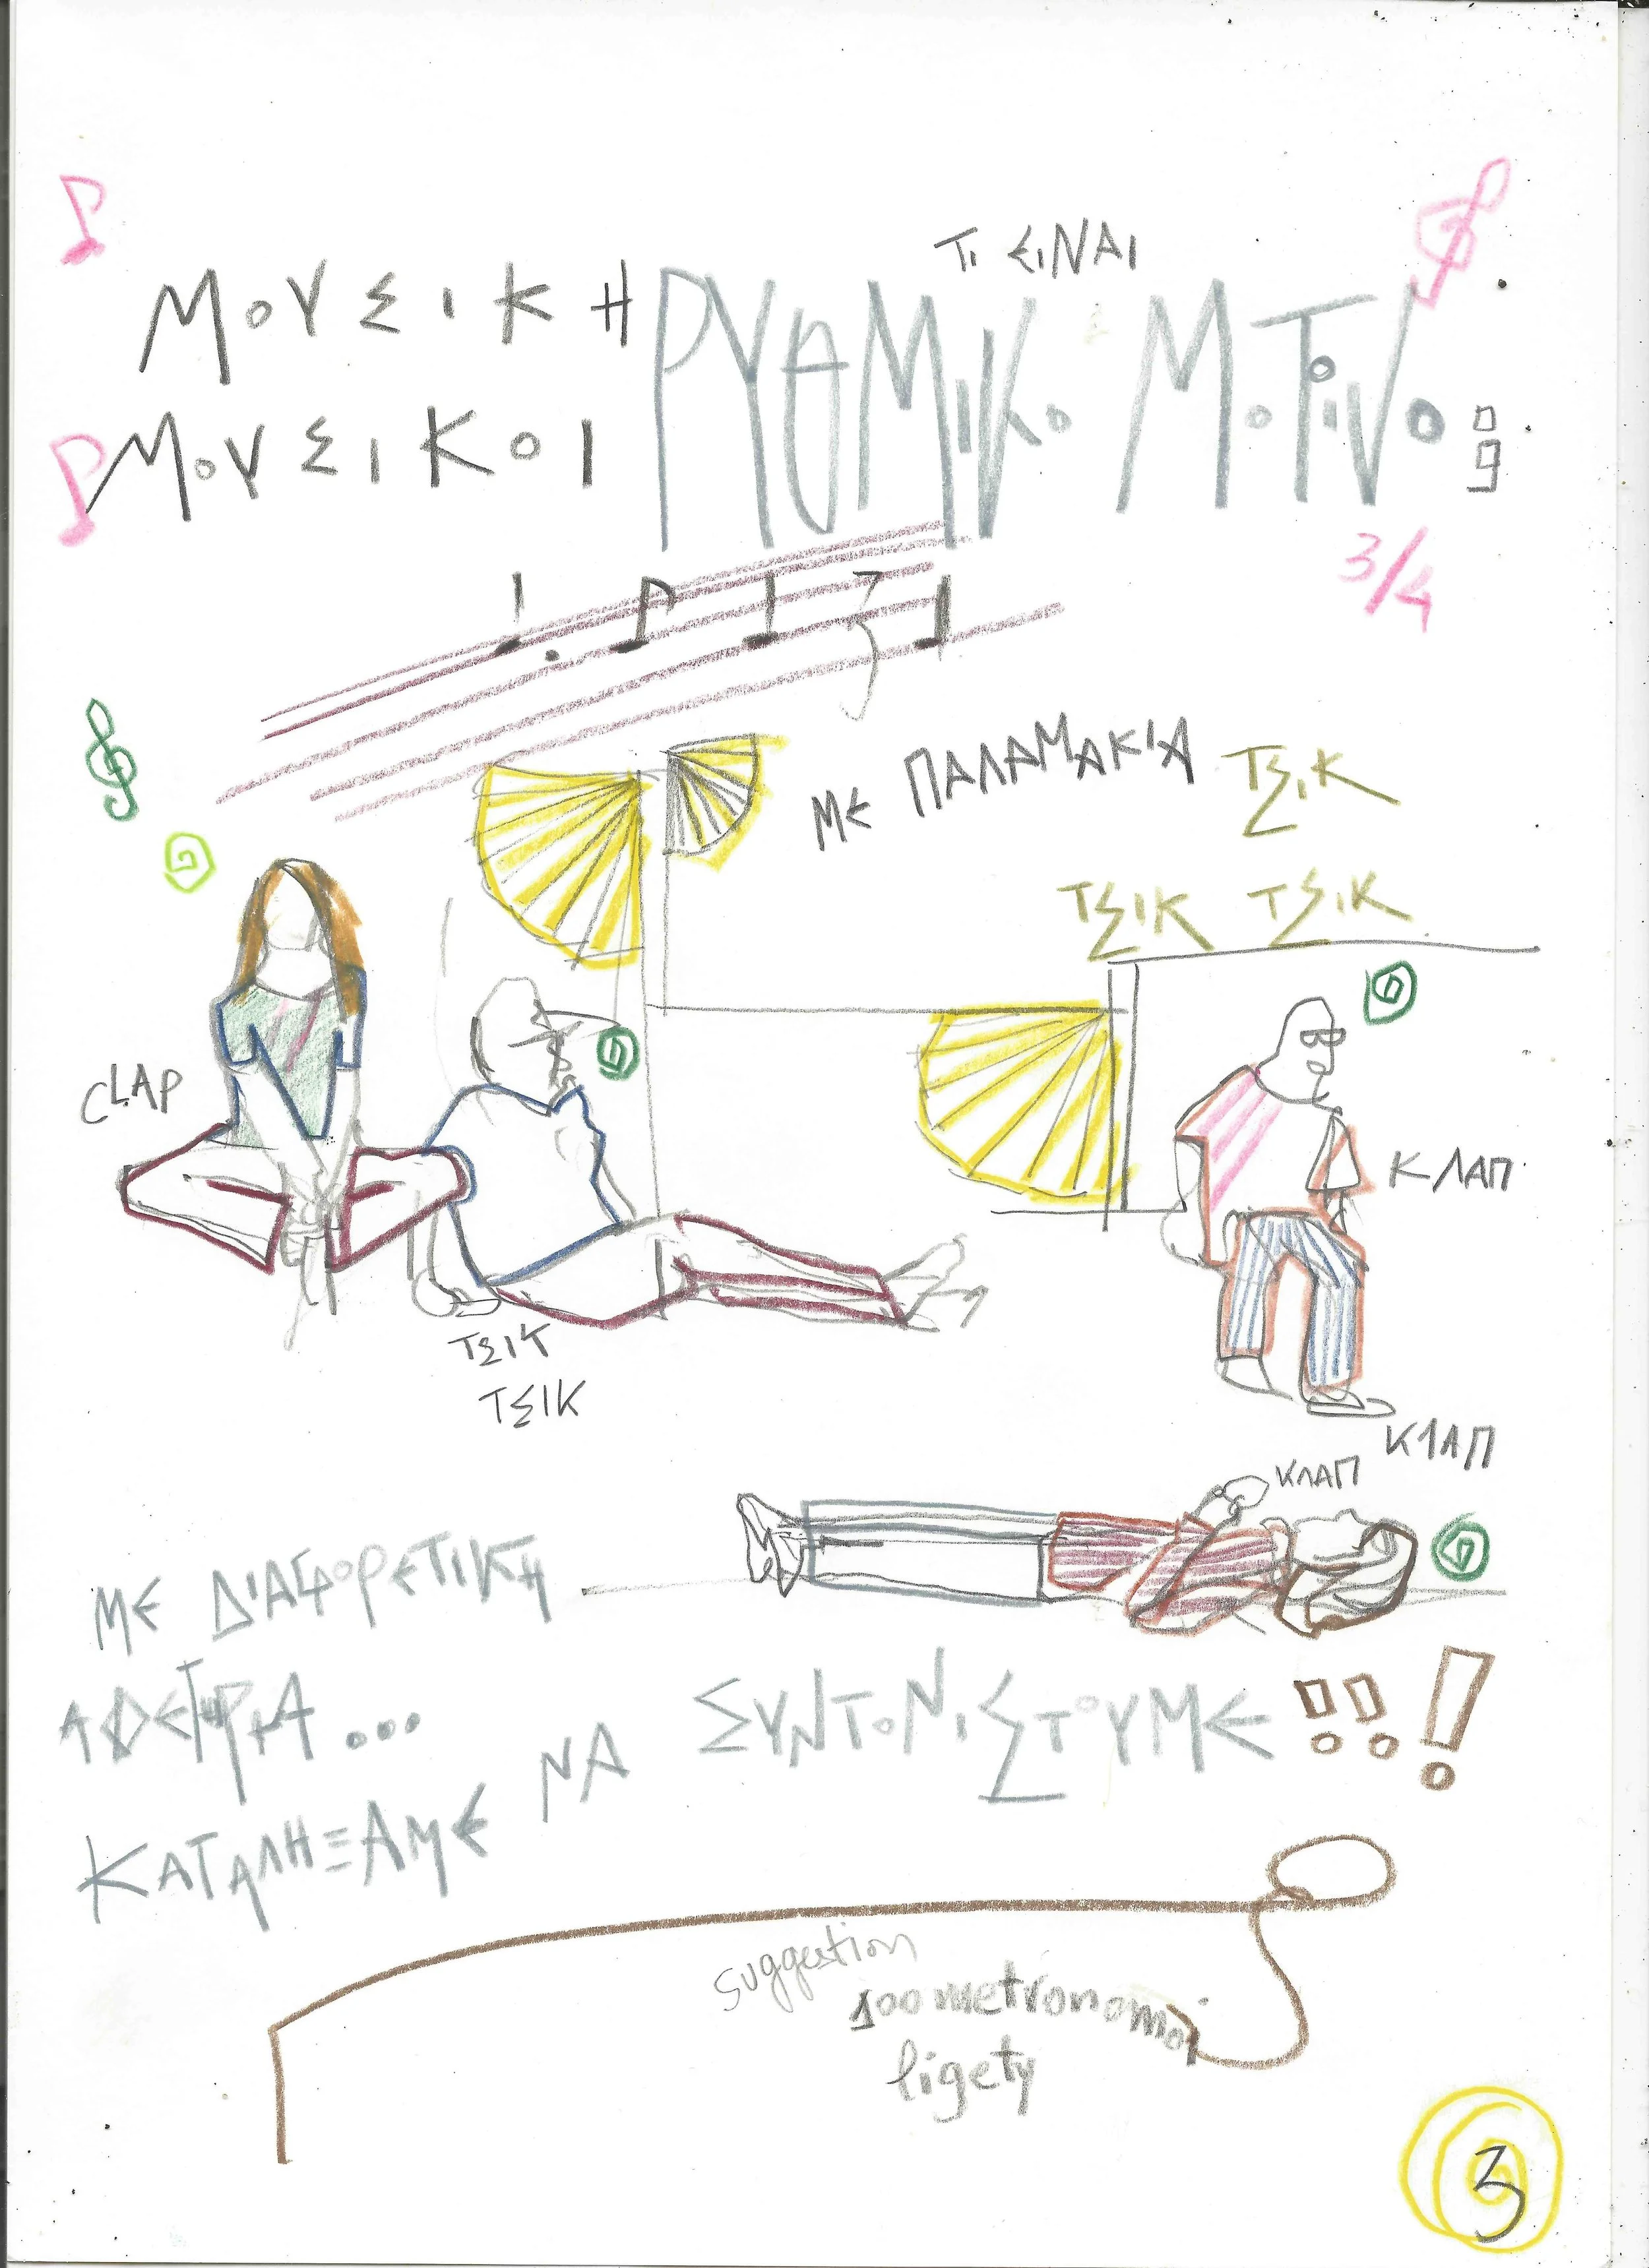 ΤΙ ΕΙΝΑΙ
ΜΟΥΣΙΚΗ
ΡΥΘΜΙΚΟ ΜΟΤΙΝΟ
ΜΟΥΣΙΚΟΙ
3/4
ΜΕ ΠΑΛΑΜΑΚΙΑ
ΤΣΙΚ
ΤΣΙΚ ΤΣΙΚ
CLAP
ΚΛΑΠ
ΤΣΙΚ
ΤΣΙΚ
ΚΛΑΠ
ΚΛΑΠ
ΜΕ ΔΙΑΦΟΡΕΤΙΚΗ
ΑΦΕΤΗΡΙΑ...
ΚΑΤΑΛΗΞΑΜΕ ΝΑ ΣΥΝΤΟΝΙΣΤΟΥΜΕ !!!
suggestion
100 metronomoi
ligety
3